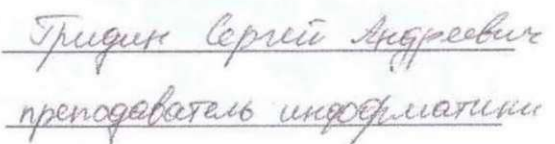 Гридин Сергей Андреевич
преподаватель информатики